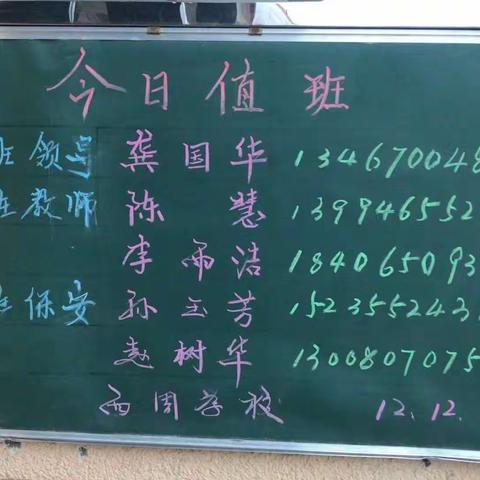 今日值班
班领导 龚国华 134670048
班教师 陈慧 139946552
李雨浩 184065093
班保安 孙玉芳 152355243
赵树华 1300807075
西周学校 12.12.